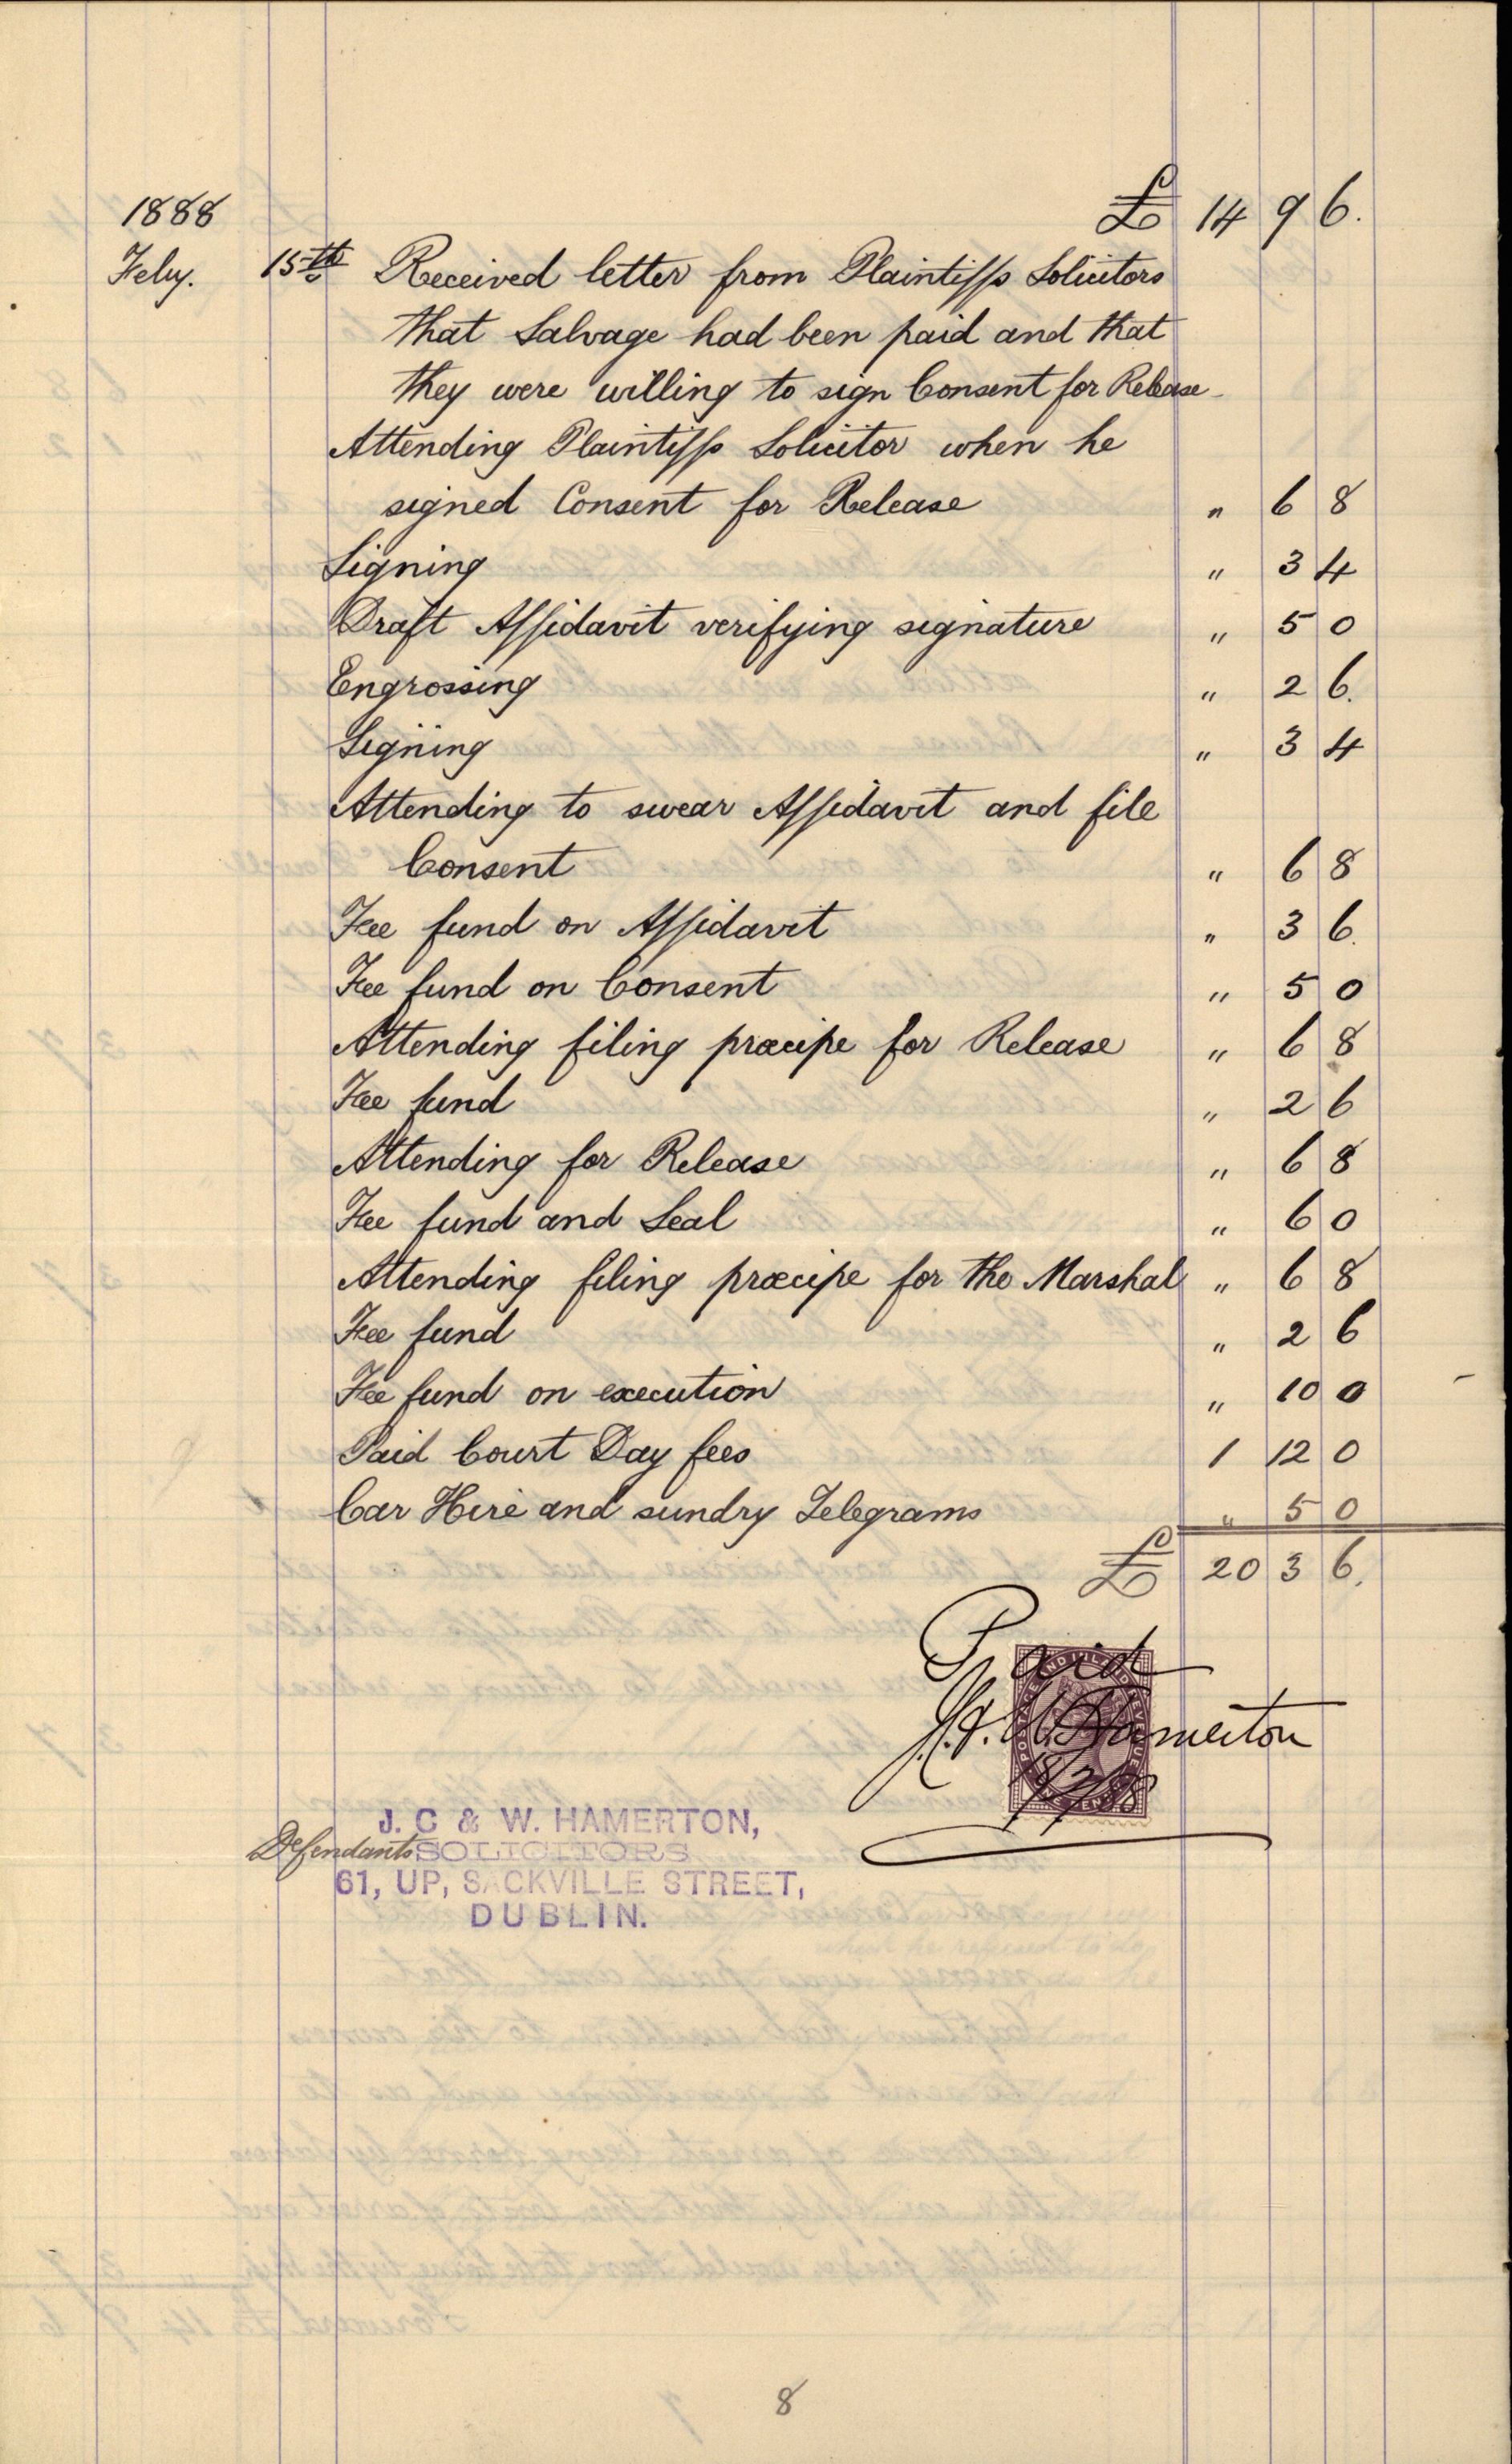 1888 £ 14 9 6.
Feby. 15th Received letter from Plaintiffs Solicitors
that Salvage had been paid and that
they were willing to sign Consent for Release
Attending Plaintiffs Solicitor when he
signed Consent for Release " 6 8
Signing " 3 4
Draft Affidavit verifying signature " 5 0
Engrossing " 2 6.
Signing " 3 4
Attending to swear Affidavit and file
Consent " 6 8
Fee fund on Affidavit " 3 6.
Fee fund on Consent " 5 0
Attending filing præcipe for Release " 6 8
Fee fund " 2 6
Attending for Release " 6 8
Fee fund and Seal " 6 0
Attending filing præcipe for the Marshal " 6 8
Fee fund " 2 6
Fee fund on execution " 10 0
Paid Court Day fees 1 12 0
Car Hire and sundry Telegrams " 5 0
£ 20 3 6.
Paid
J. C. & W. Hamerton
J. C & W. HAMERTON,
Defendants SOLICITORS
61, UP, SACKVILLE STREET,
DUBLIN.
8